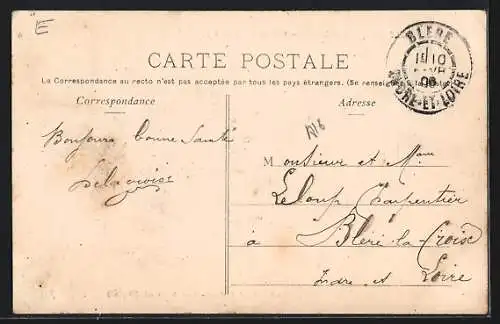 E
BLERE
10
INDRE-ET-LOIRE
CARTE POSTALE
La Correspondance au recto n'est pas acceptée par tous les pays étrangers. (Se renseigner
Correspondance
Adresse
Bonjours Bonne Santé
Monsieur et Mme
Leloup Charpentier
à Bléré-la-Croix
Indre et Loire